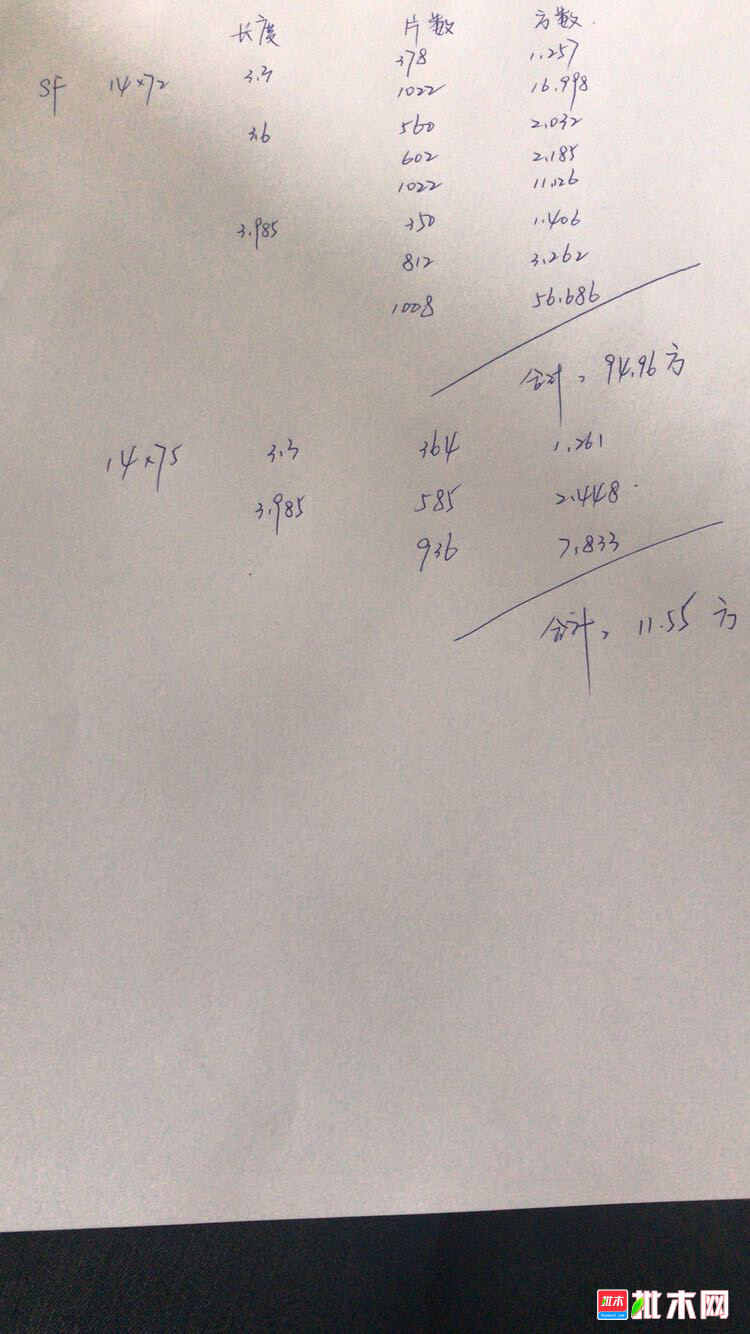 长度 片数 方数
SF 14×72 3.3 378 1.257
1022 16.998
3.6 560 2.032
602 2.185
1022 11.126
3.985 350 1.406
812 3.262
1008 56.686
合计: 94.96方
14×75 3.3 364 1.261
3.985 585 2.448
936 7.833
合计: 11.55方
批木
批木网